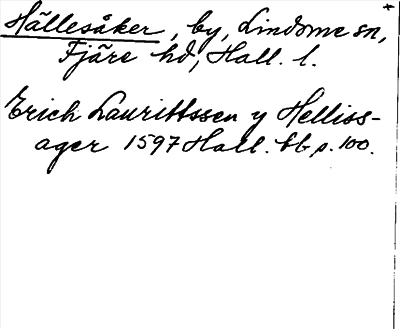 Hällesåker, by, Lindome sn,
Fjäre hd, Hall. l.
Erich Laurittssen y Helliss-
ager 1597 Hall. bb p. 100.